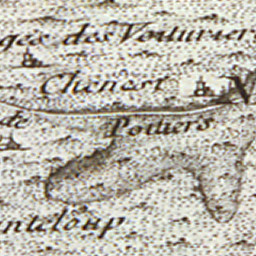 ges des Voiturier
Chenest
N
de
Potiers
nteloup